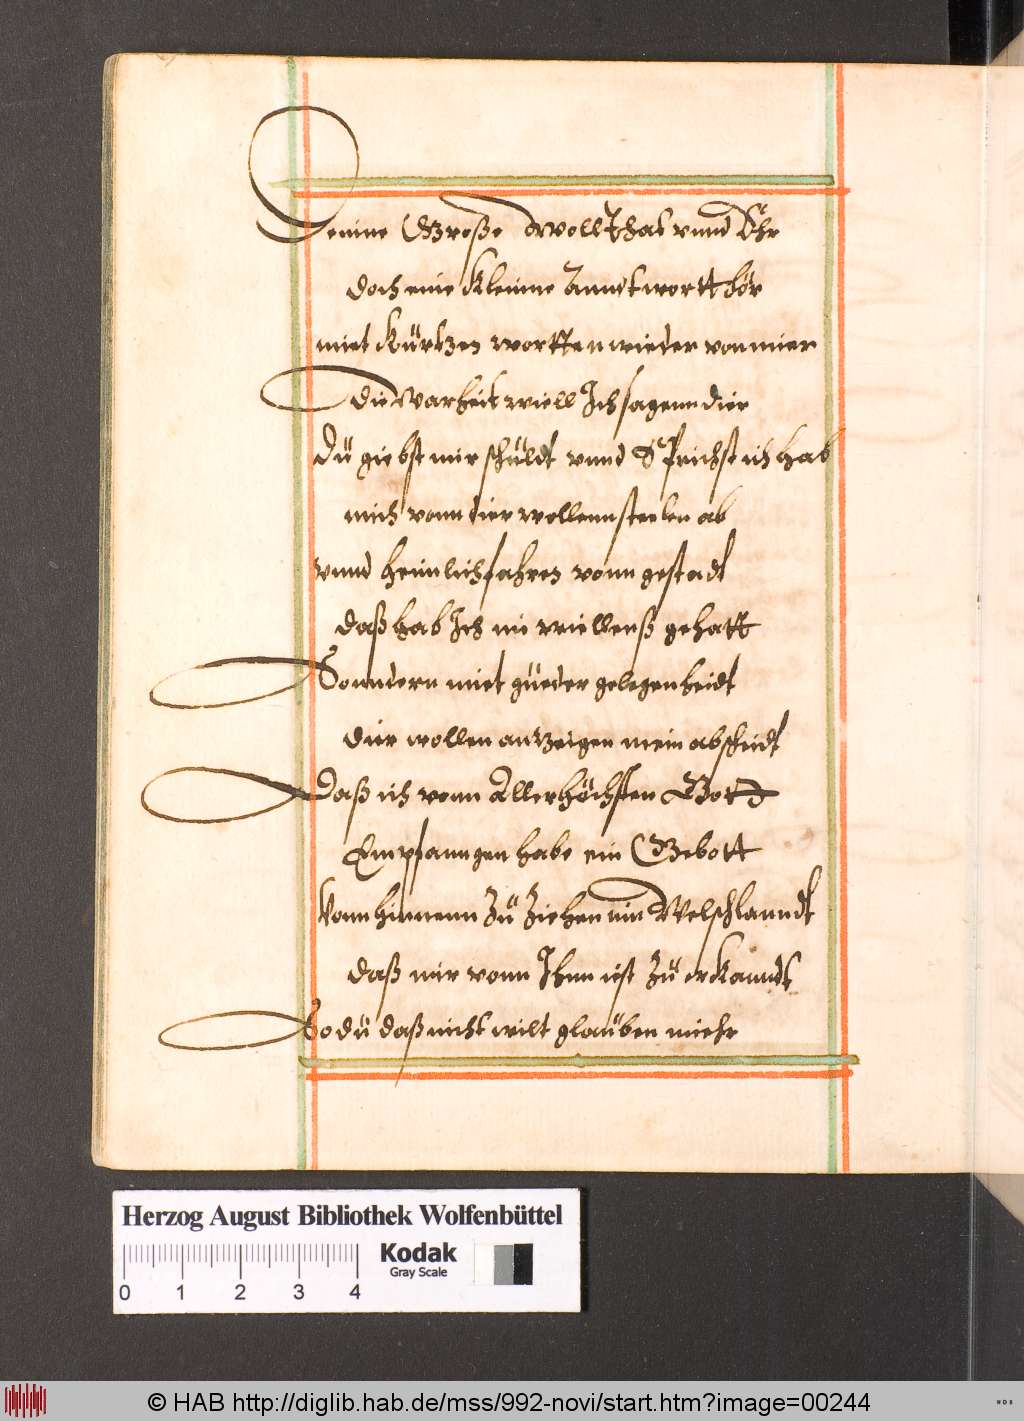 Deinne Große Wollthat vnnd Ehr
doch eine Kleinne Anntwortt hör
miet Kürtzen wortten wieder von mier
die Warheit wiell Ich sagenn dier
Dü giebst mir schüldt vnnd Sprichst ich hab
mich vonn dier wollenn steelen ab
vnnd heimlich fahren vonn gestadt
daß hab Ich nie wiellenß gehatt
Sonndern miet güeder gelegenheidt
dier wollen anzeigen mein abscheidt
Daß ich vonn Allerhöchsten Gott
Empfanngen habe ein Gebott
Vonn hinnenn Zü Ziehen inn Welschlanndt
daß mir vonn Ihm ist Zü erKanndt
So dü daß nicht wilt glaüben miehr
Herzog August Bibliothek Wolfenbüttel
Kodak
Gray Scale
0 1 2 3 4
© HAB http://diglib.hab.de/mss/992-novi/start.htm?image=00244